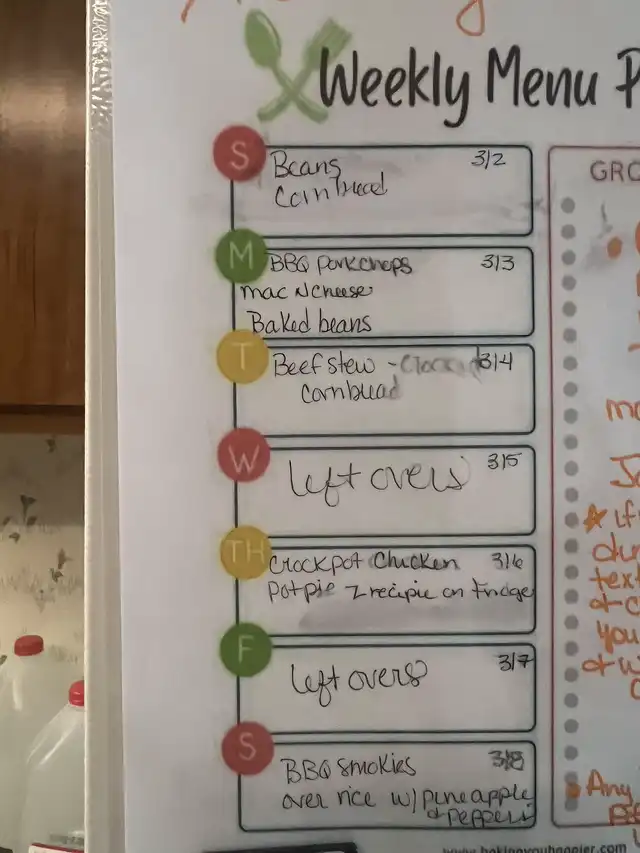 Weekly Menu P
S
Beans 3/2
Cornbread
M
BBQ Porkchops 3/3
mac N cheese
Baked beans
T
Beef stew - 3/4
Cornbread
W
left overs 3/5
TH
Crockpot Chicken 3/6
Potpie recipie on Fridge
F
left overs 3/7
S
BBQ smokies 3/8
over rice w/ pineapple
& peppers
GRO
If
text
you
Any
www.bakingyouhappier.com